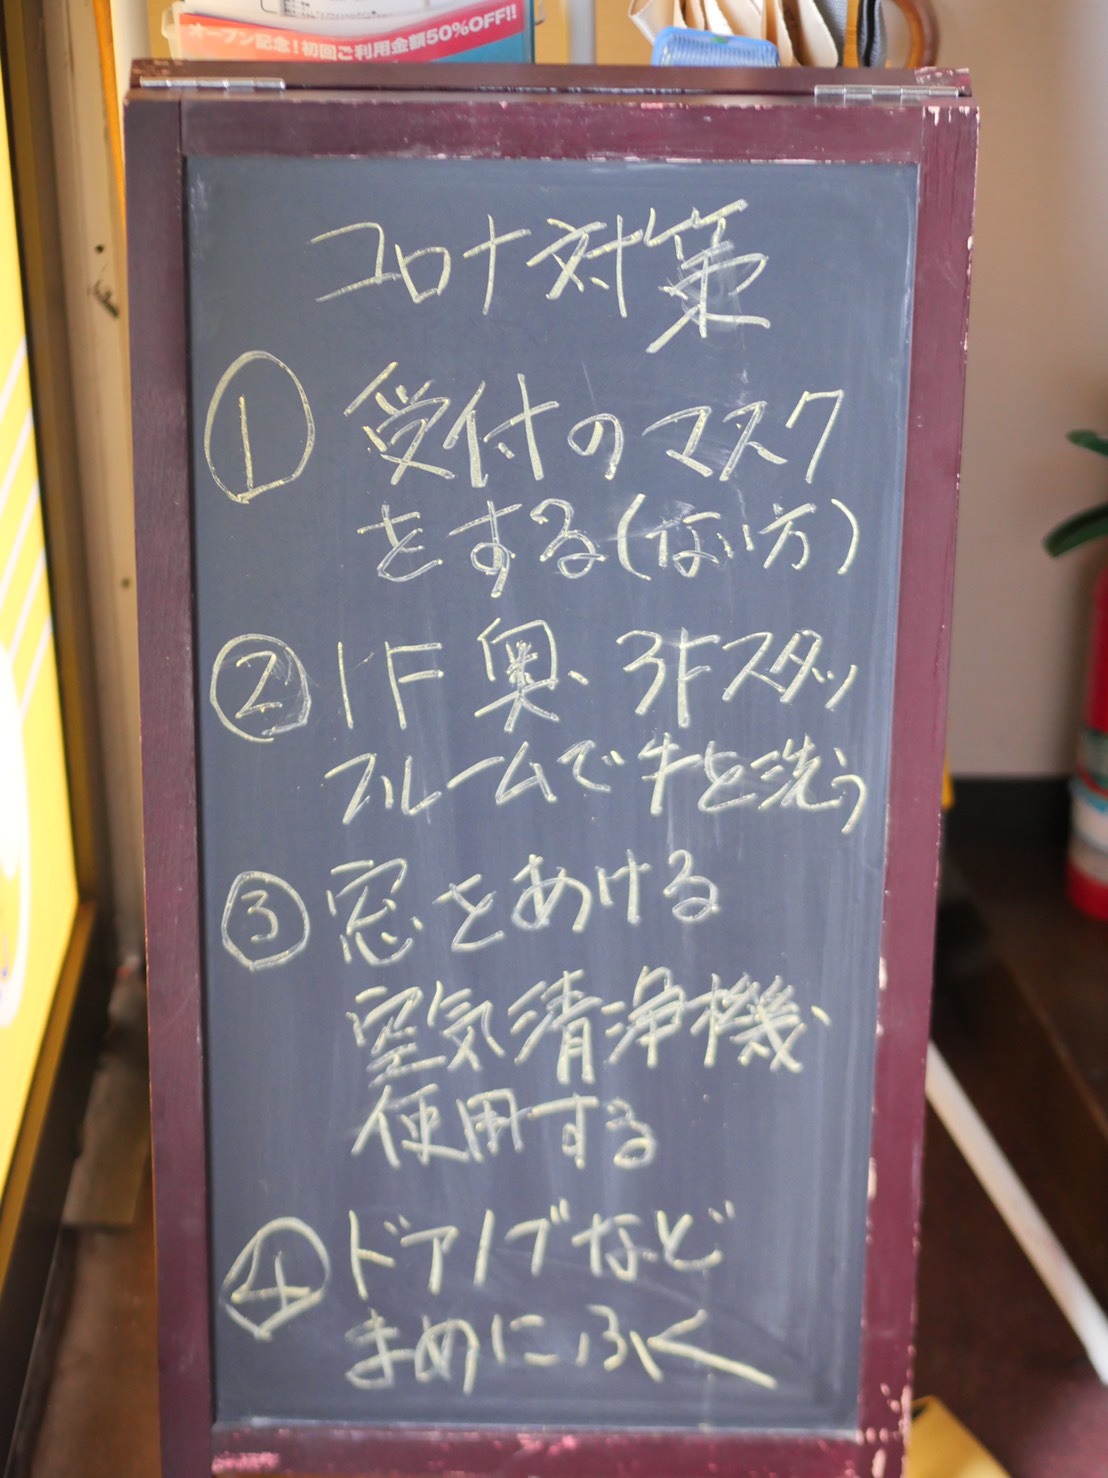 オープン記念!初回ご利用金額50%OFF!!
コロナ対策
① 受付のマスク
をする(ない方)
② 1F奥、3Fスタッ
フルームで手を洗う
③ 窓をあける
空気清浄機、
使用する
④ ドアノブなど
まめにふく